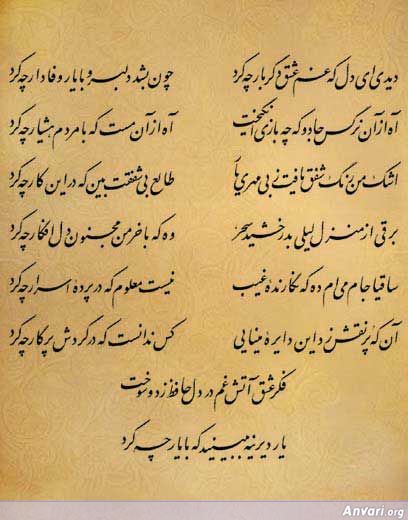 دیدی ای دل که غم عشق دگر بار چه کرد چون بشد دلبر و با یار وفادار چه کرد
آه از آن نرگس جادو که چه بازی انگیخت آه از آن مست که با مردم هشیار چه کرد
اشک من رنگ شفق یافت ز بی مهری یار طالع بی شفقت بین که در این کار چه کرد
برقی از منزل لیلی بدرخشید سحر وه که با خرمن مجنون دل افگار چه کرد
ساقیا جام می ام ده که نگارنده غیب نیست معلوم که در پرده اسرار چه کرد
آن که پر نقش زد این دایره مینایی کس ندانست که در گردش پرگار چه کرد
فکر عشق آتش غم در دل حافظ زد و سوخت
یار دیرینه ببینید که با یار چه کرد
Anvari.org